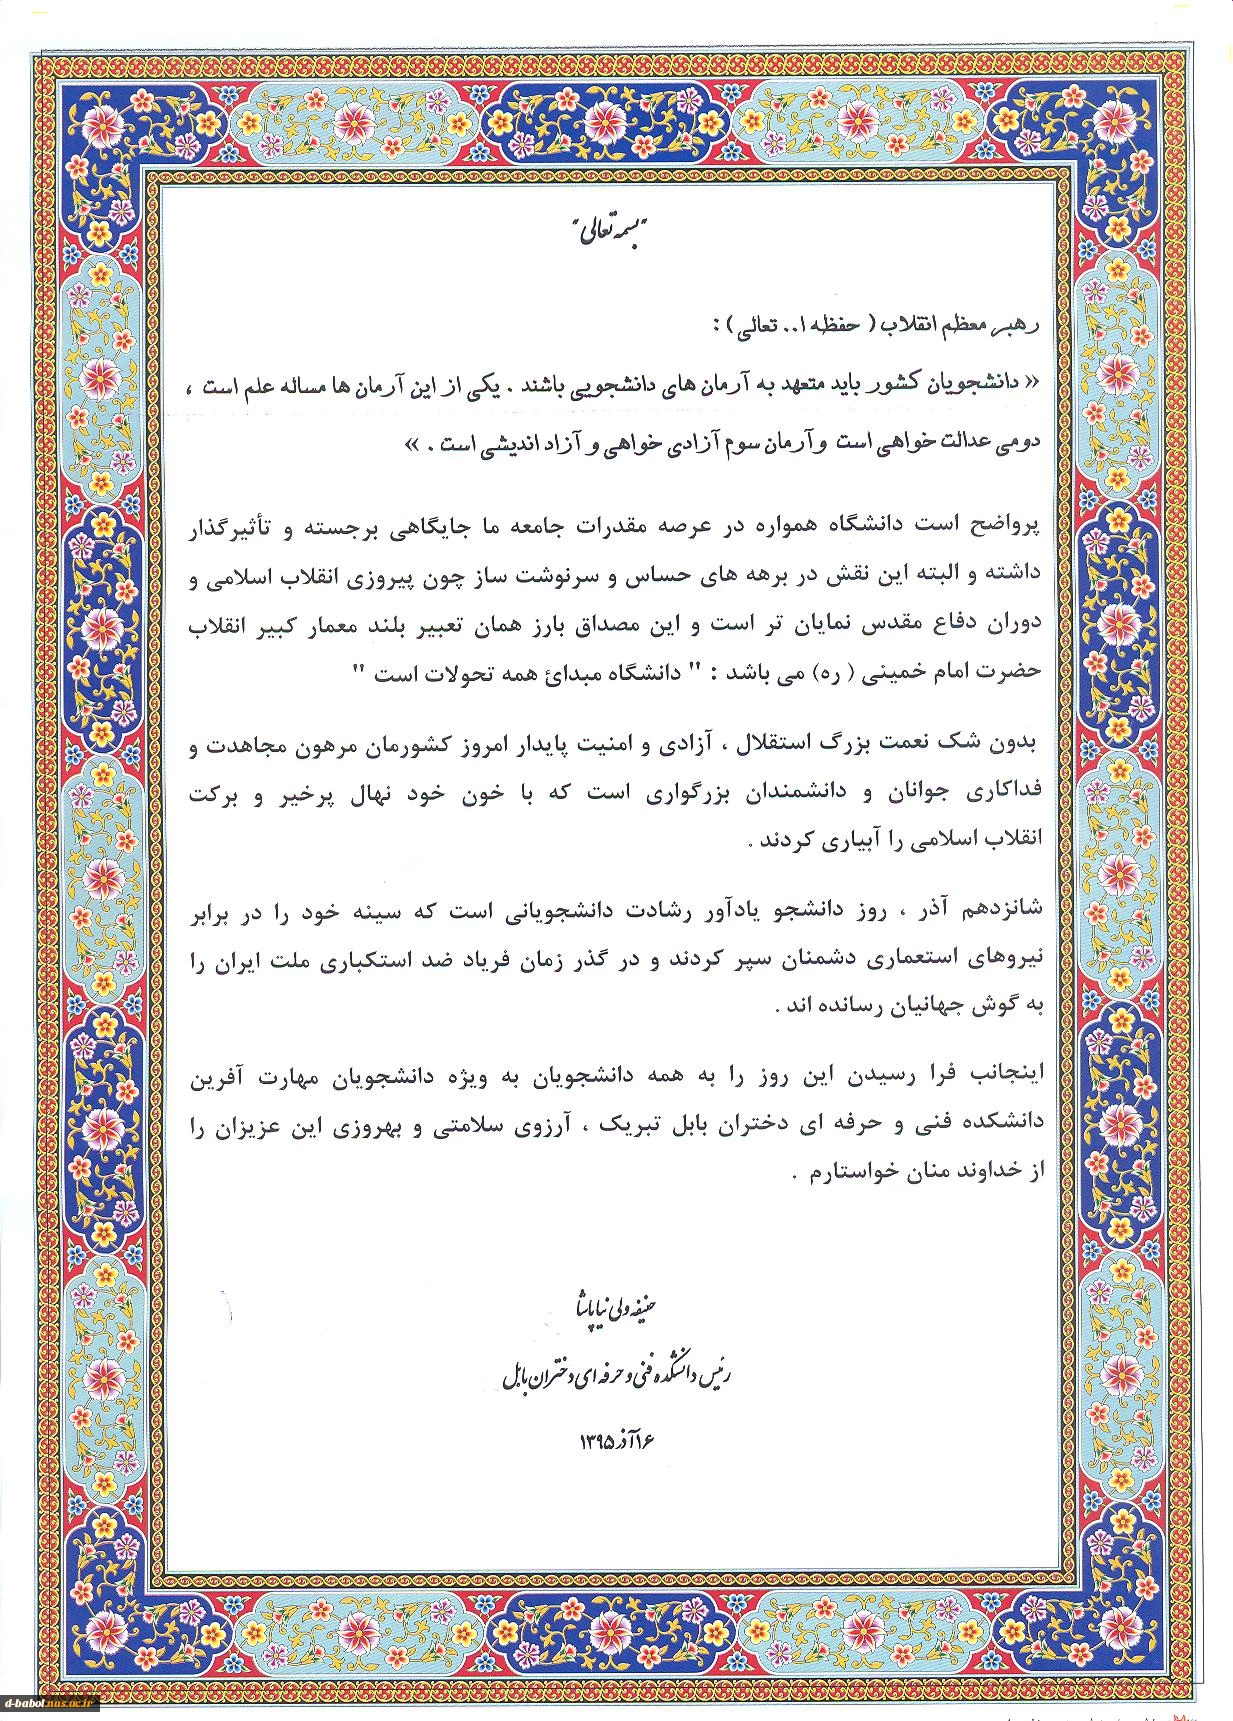 "بسمه تعالی"
رهبر معظم انقلاب ( حفظه ا.. تعالی ) :
« دانشجویان کشور باید متعهد به آرمان های دانشجویی باشند . یکی از این آرمان ها مساله علم است ،
دومی عدالت خواهی است و آرمان سوم آزادی خواهی و آزاد اندیشی است . »
پرواضح است دانشگاه همواره در عرصه مقدرات جامعه ما جایگاهی برجسته و تأثیرگذار
داشته و البته این نقش در برهه های حساس و سرنوشت ساز چون پیروزی انقلاب اسلامی و
دوران دفاع مقدس نمایان تر است و این مصداق بارز همان تعبیر بلند معمار کبیر انقلاب
حضرت امام خمینی ( ره) می باشد : " دانشگاه مبدائ همه تحولات است "
بدون شک نعمت بزرگ استقلال ، آزادی و امنیت پایدار امروز کشورمان مرهون مجاهدت و
فداکاری جوانان و دانشمندان بزرگواری است که با خون خود نهال پرخیر و برکت
انقلاب اسلامی را آبیاری کردند .
شانزدهم آذر ، روز دانشجو یادآور رشادت دانشجویانی است که سینه خود را در برابر
نیروهای استعماری دشمنان سپر کردند و در گذر زمان فریاد ضد استکباری ملت ایران را
به گوش جهانیان رسانده اند .
اینجانب فرا رسیدن این روز را به همه دانشجویان به ویژه دانشجویان مهارت آفرین
دانشکده فنی و حرفه ای دختران بابل تبریک ، آرزوی سلامتی و بهروزی این عزیزان را
از خداوند منان خواستارم .
حنیفه ولی نیا پاشا
رئیس دانشکده فنی و حرفه ای دختران بابل
۱۶ آذر ۱۳۹۵
d-babol.nus.ac.ir